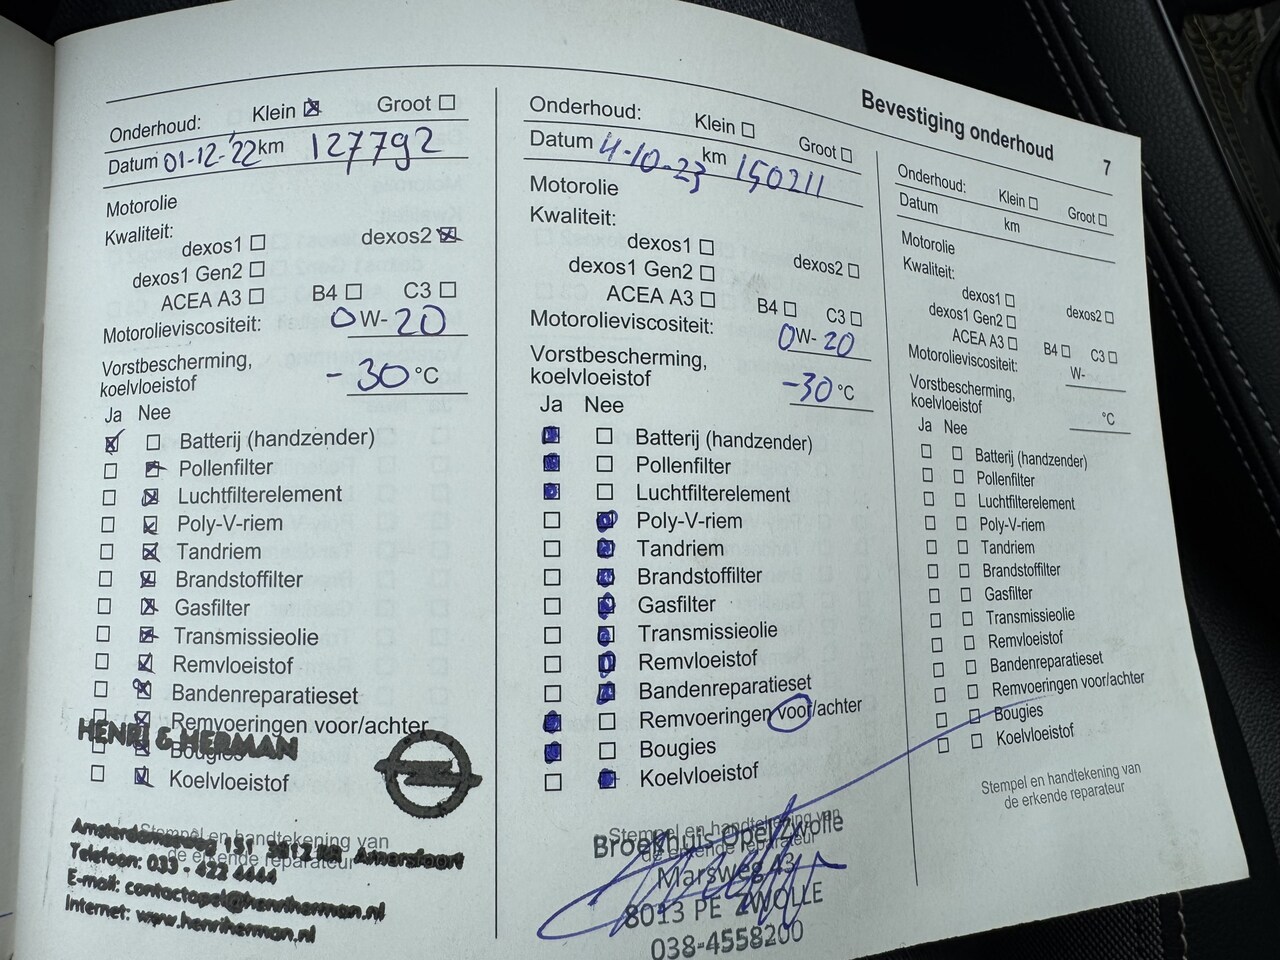 Bevestiging onderhoud 7
Onderhoud: Klein Groot
Datum 01-12-'22 km 127792
Motorolie
Kwaliteit:
dexos1 dexos2
dexos1 Gen2
ACEA A3 B4 C3
Motorolieviscositeit: 0W-20
Vorstbescherming,
koelvloeistof -30 °C
Ja Nee
Batterij (handzender)
Pollenfilter
Luchtfilterelement
Poly-V-riem
Tandriem
Brandstoffilter
Gasfilter
Transmissieolie
Remvloeistof
Bandenreparatieset
Remvoeringen voor/achter
Bougies
Koelvloeistof
Stempel en handtekening van
de erkende reparateur
HENRI & HERMAN
Amsterdamseweg 131 Amersfoort
Telefoon: 033 - 422 4444
E-mail: contactopel@henriherman.nl
Internet: www.henriherman.nl
Onderhoud: Klein Groot
Datum 4-10-23 km 150211
Motorolie
Kwaliteit:
dexos1 dexos2
dexos1 Gen2
ACEA A3 B4 C3
Motorolieviscositeit: 0W-20
Vorstbescherming,
koelvloeistof -30 °C
Ja Nee
Batterij (handzender)
Pollenfilter
Luchtfilterelement
Poly-V-riem
Tandriem
Brandstoffilter
Gasfilter
Transmissieolie
Remvloeistof
Bandenreparatieset
Remvoeringen voor/achter
Bougies
Koelvloeistof
Stempel en handtekening van
de erkende reparateur
Broekhuis Opel Zwolle
Marsweg 43
8013 PE ZWOLLE
038-4558200
Onderhoud: Klein Groot
Datum km
Motorolie
Kwaliteit:
dexos1 dexos2
dexos1 Gen2
ACEA A3 B4 C3
Motorolieviscositeit: W-
Vorstbescherming,
koelvloeistof °C
Ja Nee
Batterij (handzender)
Pollenfilter
Luchtfilterelement
Poly-V-riem
Tandriem
Brandstoffilter
Gasfilter
Transmissieolie
Remvloeistof
Bandenreparatieset
Remvoeringen voor/achter
Bougies
Koelvloeistof
Stempel en handtekening van
de erkende reparateur